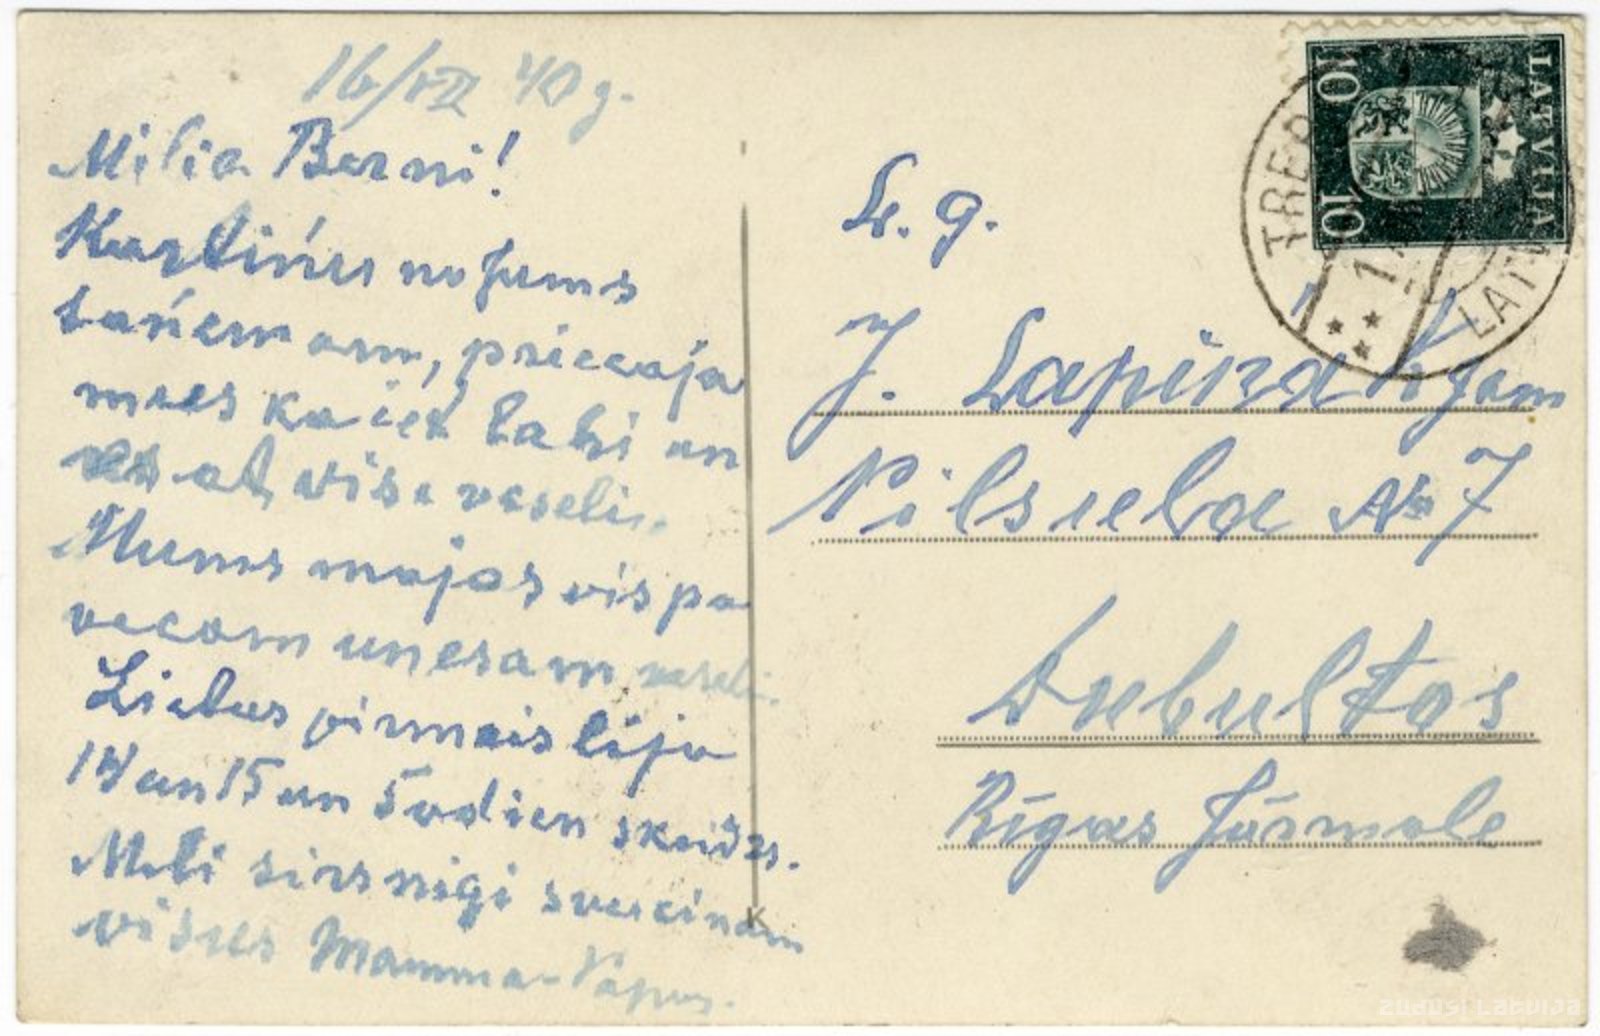 16/VII 40 g.
Milia Berni!
Kartiņu no Jums
sańemam, priecaja
mees ka iet labi un
esat visi veseli.
Mums majas vis pa
vecam un esam veseli.
Lietus pirmais lija
14 un 15 un šodien skaidrs.
Mīļi sirsnigi sveicinam
visus Mamma-Papus.
L. g.
J. Lapiņa kjam
Pilsiela № 7
Dubultos
Rīgas Jūrmale
LATVIJA
10 10
LATV
ZUDUSI LATVIJA